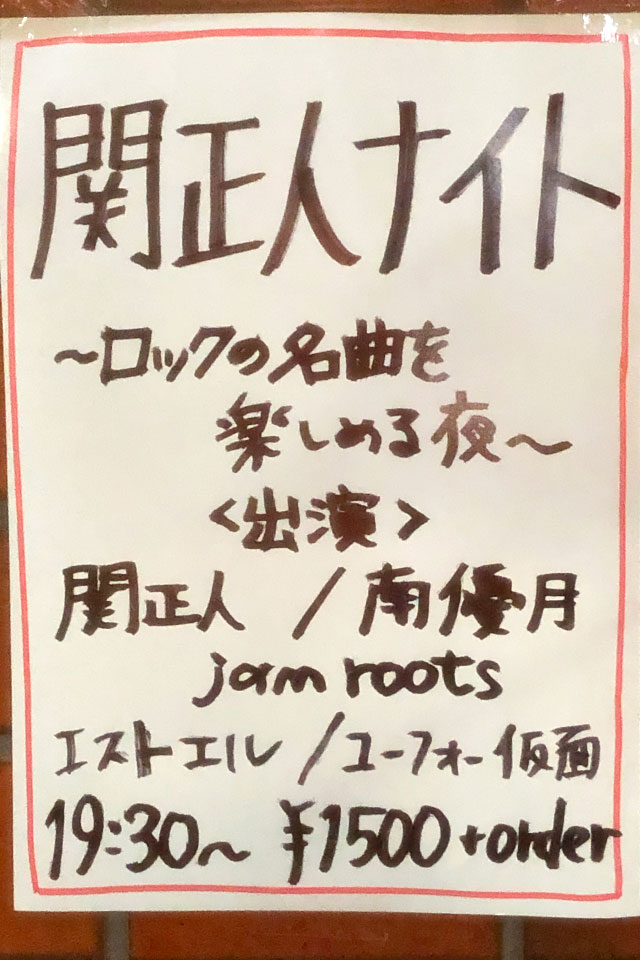 関正人ナイト
～ロックの名曲を
楽しめる夜～
<出演>
関正人 / 南優月
jam roots
エストエル / ユーフォー仮面
19:30～ ¥1500+order